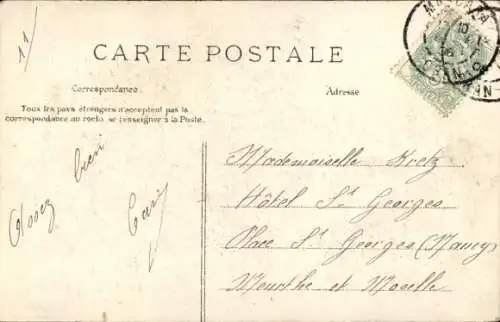 11
CARTE POSTALE
Correspondance
Adresse
Tous les pays étrangers n'acceptent pas la
correspondance au recto, se renseigner à la Poste.
Assez bien
Mademoiselle Kretz
Hôtel St Georges
Place St Georges (Nancy)
Meurthe et Moselle